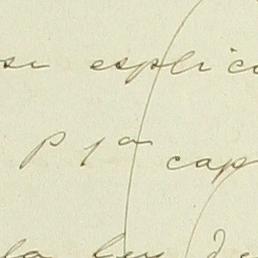 se esplica
P 1ª cap
la ley de